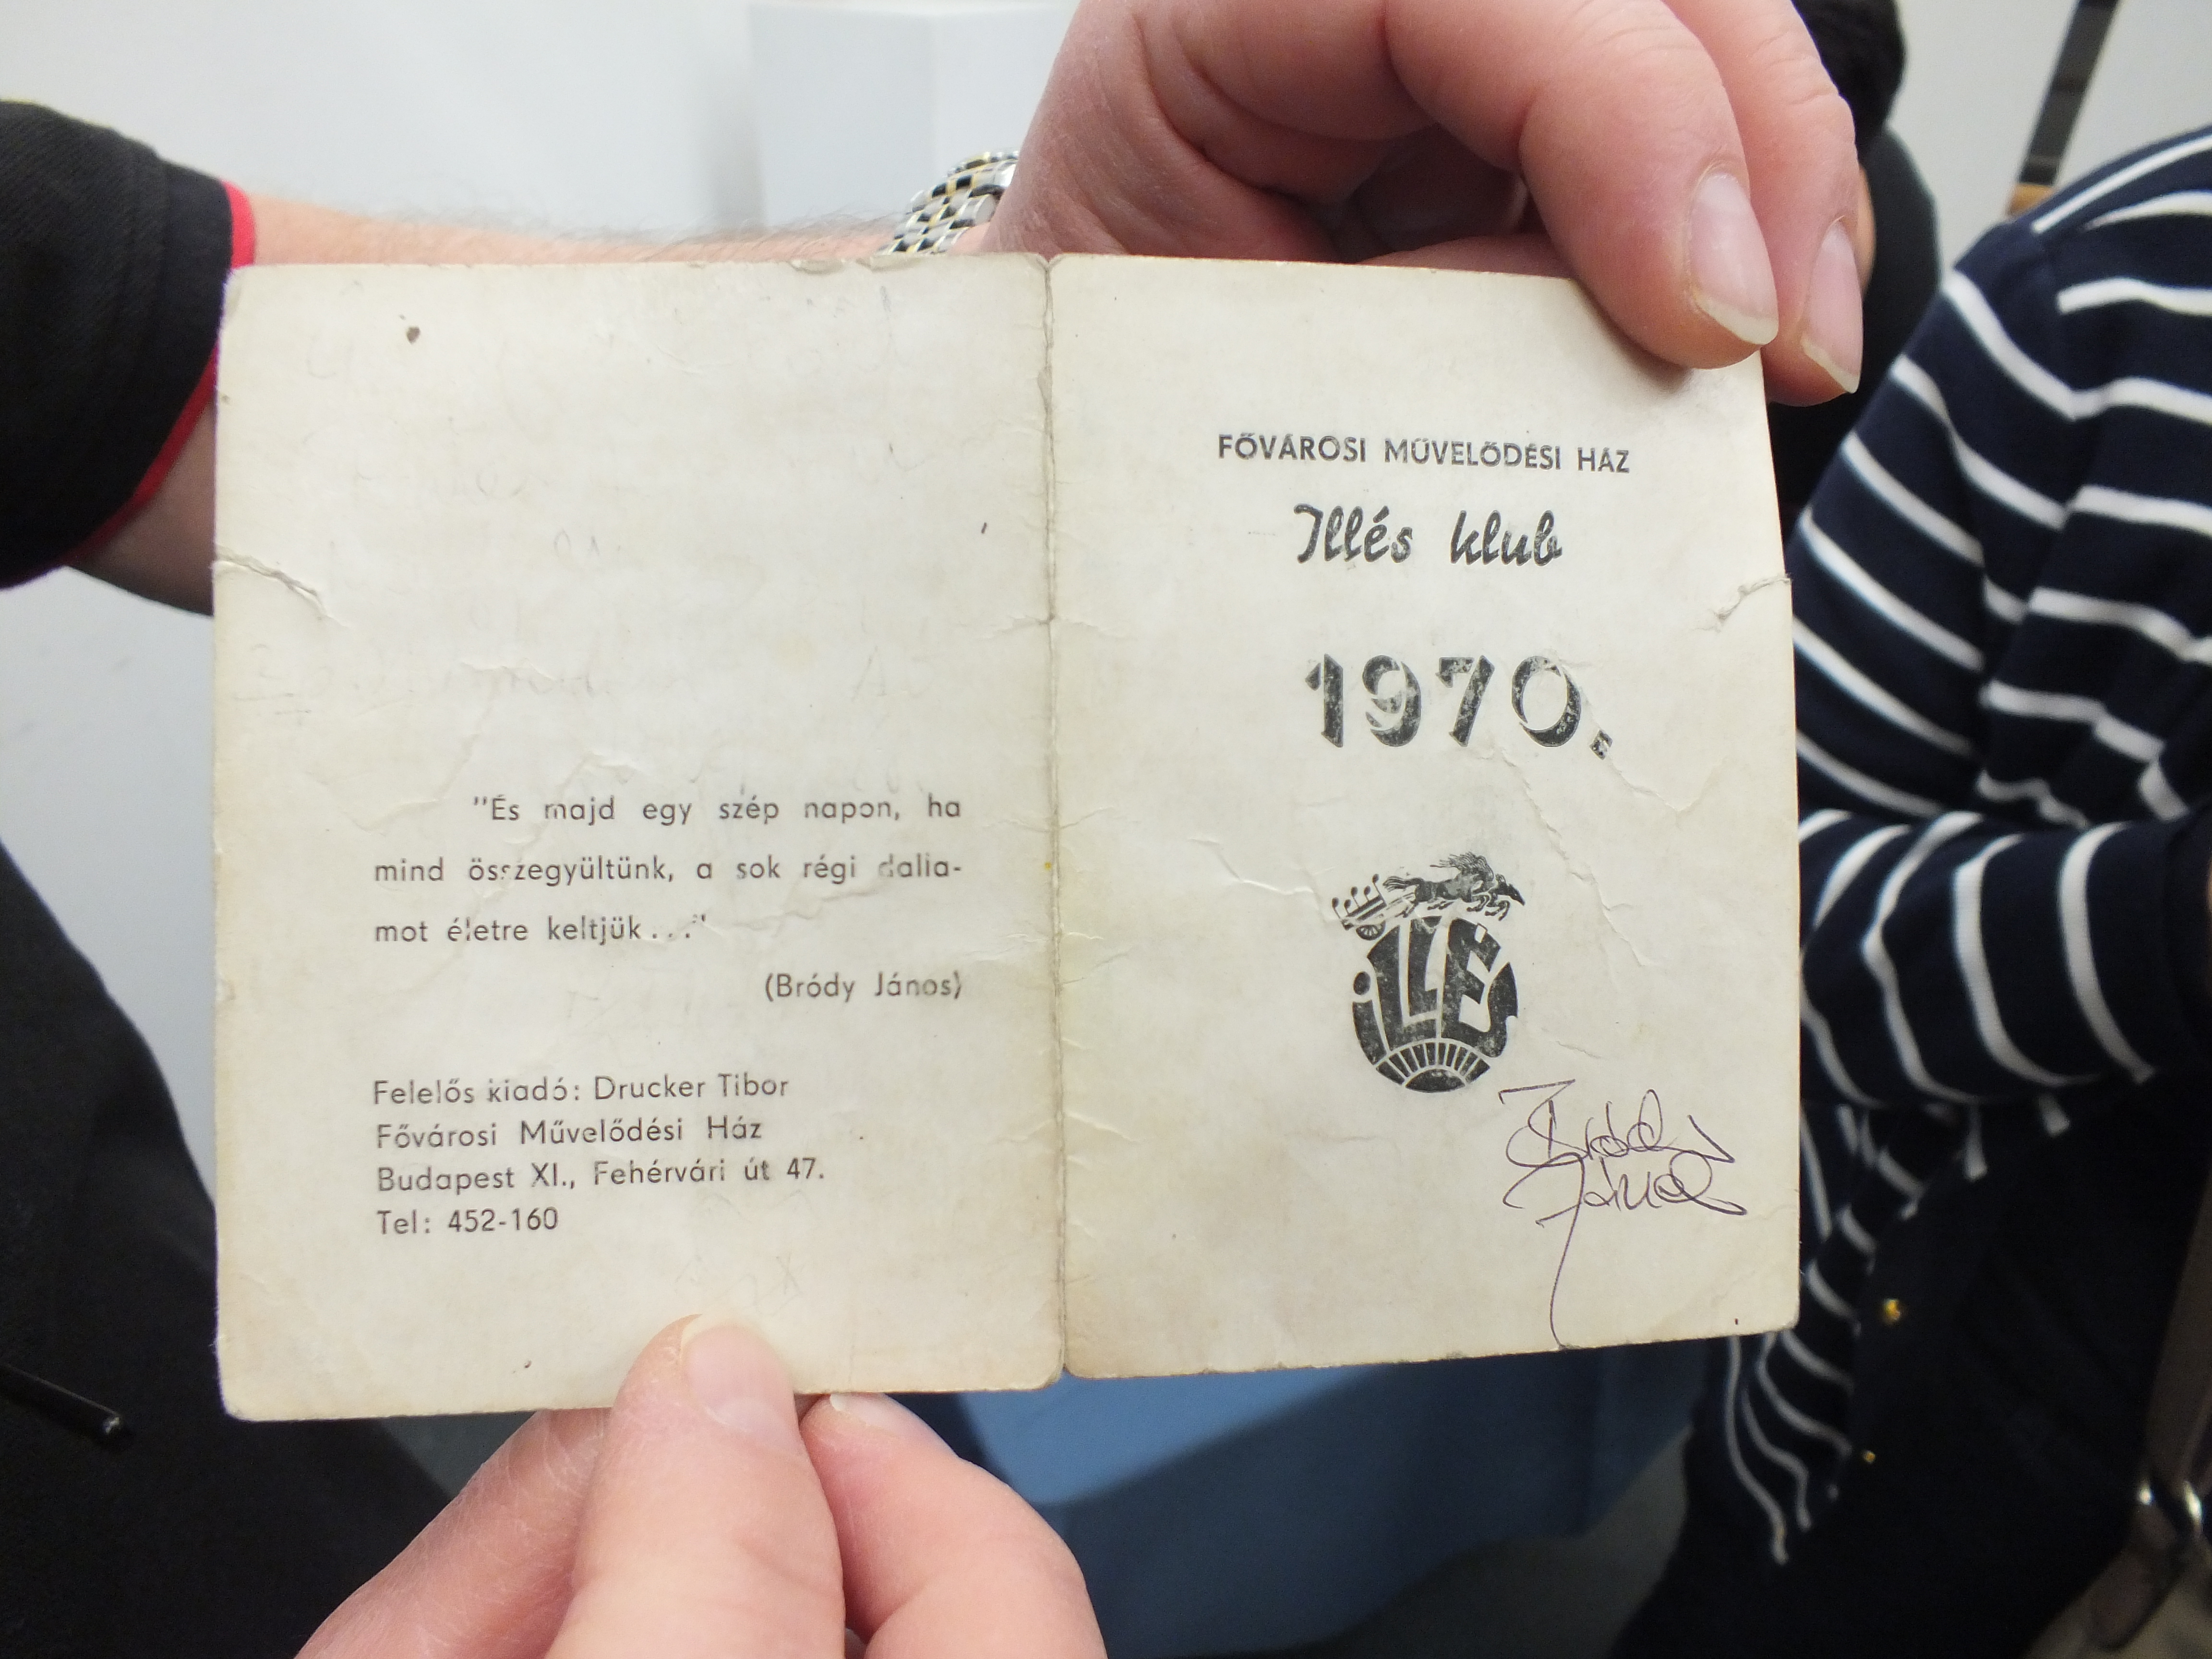 "És majd egy szép napon, ha
mind összegyültünk, a sok régi dalla-
mot életre keltjük..."
(Bródy János)
Felelős kiadó: Drucker Tibor
Fővárosi Művelődési Ház
Budapest XI., Fehérvári út 47.
Tel: 452-160
FŐVÁROSI MŰVELŐDÉSI HÁZ
Illés klub
1970.
iLLÉS
Bródy
János